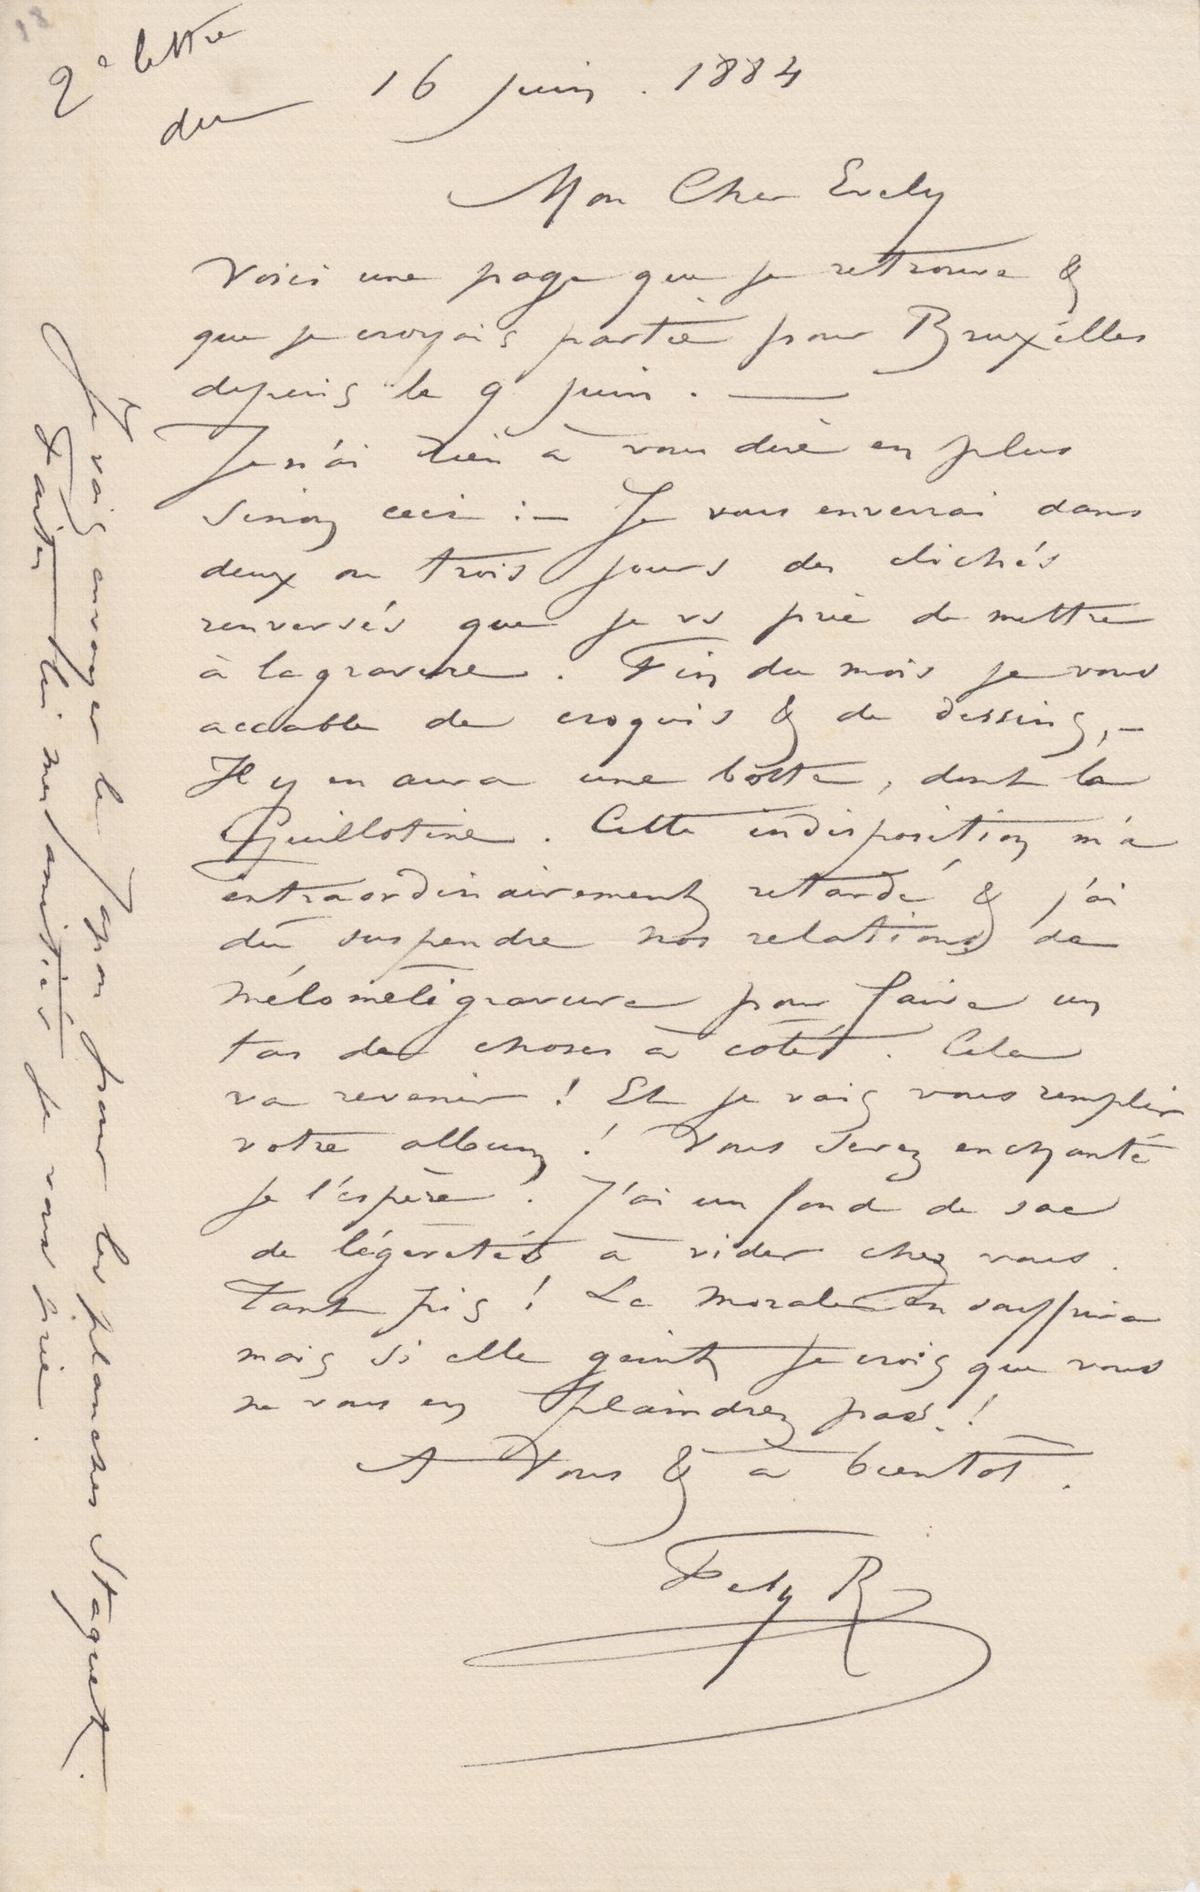 18
2e lettre
du 16 juin . 1884
Mon Cher Evely
Voici une page que je retrouve &
que je croyais partie pour Bruxelles
depuis le 9 juin . —
Je n'ai rien à vous dire en plus
sinon ceci : — Je vous enverrai dans
deux ou trois jours des clichés
renversés que je vs prie de mettre
à la gravure . Fin du mois je vous
accable de croquis & de dessins, —
Il y en aura une botte , dont la
Guillotine . Cette indisposition m'a
extraordinairement retardé & j'ai
dû suspendre nos relations de
méloméligravure pour faire un
tas de choses à côté . Cela
va revenir ! Et je vais vous remplir
votre album ! Vous serez enchanté
je l'espère . J'ai un fond de sac
de légèretés à vider chez vous .
Tant pis ! La morale en souffrira
mais si elle geint je crois que vous
ne vous en plaindrez pas . !
A Vous & à bientôt .
Fély R
Je vais envoyer le Japon pour les planches Staquet .
Faites lui mes amitiés je vous prie .